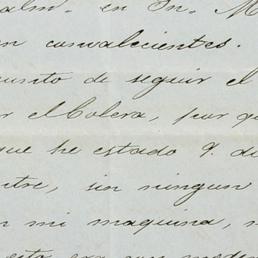 en Sn. M
n convalecientes.
unto de seguir el
r el Colera, por q
que he estado 9. d
tre, sin ningun
n mi maquina,